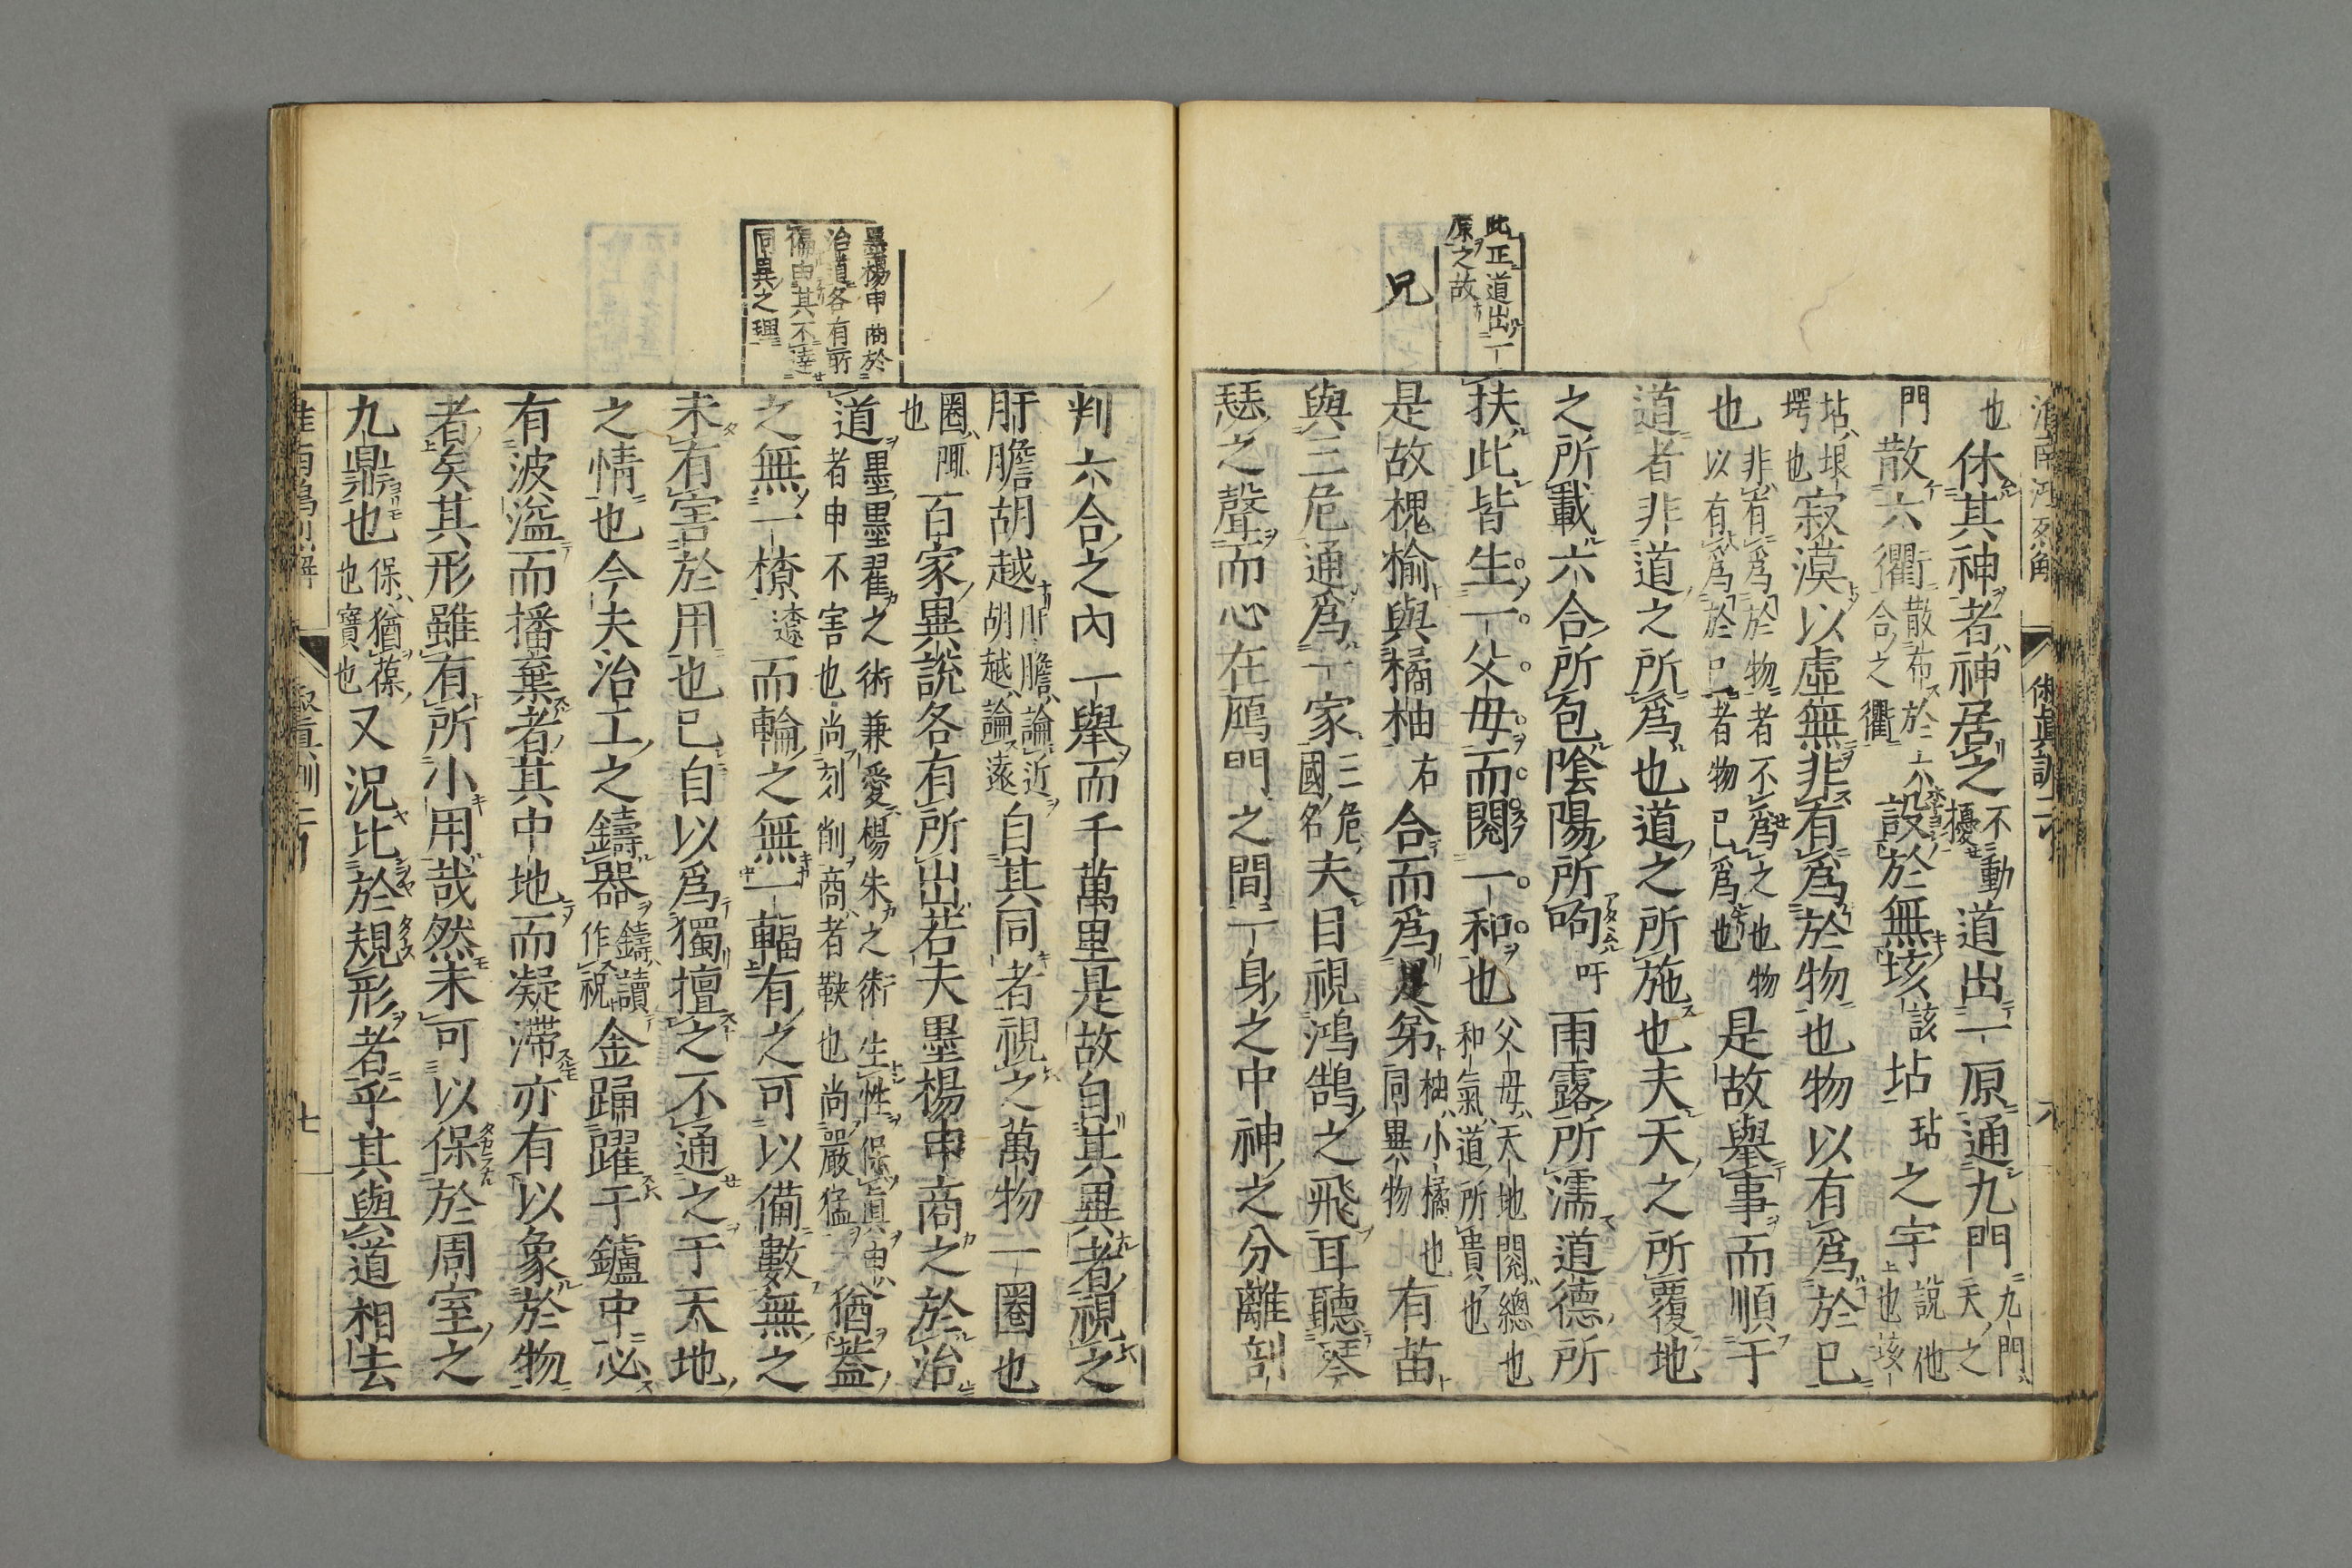 此正道出一
原之故
兄
淮南鴻烈解 俶眞訓二 六
也休其神者神居之不動擾道出一原通九門九門天之
門散六衢散布於六合之衢設於無垓該坫玷之宇說他上也垓
坫垠堮也寂漠以虛無非有爲於物也物以有爲於己
也非有爲於物者不爲之也物以有爲於己者物己爲也是故舉事而順于
道者非道之所爲也道之所施也夫天之所覆地
之所載六合所包陰陽所呴吁雨露所濡道德所
扶此皆生一父母而閱一和也父母天地閱總也和氣道所貴也
是故槐楡與橘柚右合而爲昆弟柚小橘也同異物有苗
與三危通爲一家三危國名夫目視鴻鵠之飛耳聽琴
瑟之聲而心在鴈門之間一身之中神之分離剖
墨楊申商於
治道各有所
偏申其不達
同異之理
判六合之內一舉而千萬里是故自其異者視之
肝膽胡越肝膽論近胡越論遠自其同者視之萬物一圈也
圈陬也百家異說各有所出若夫墨楊申商之於治
道墨墨翟之術兼愛楊朱之術生性保眞申者申不害也尚刻削商者鞅也尚嚴猛猶蓋
之無一橑遼而輪之無一輻有之可以備數無之
未有害於用也己自以爲獨擅之不通之于天地
之情也今夫治工之鑄器鑄讀作祝金踊躍于鑪中必
有波溢而播棄者其中地而凝滯亦有以象於物
者矣其形雖有所小用哉然未可以保於周室之
九鼎也保猶葆也寶也又況比於規形者乎其與道相去
七